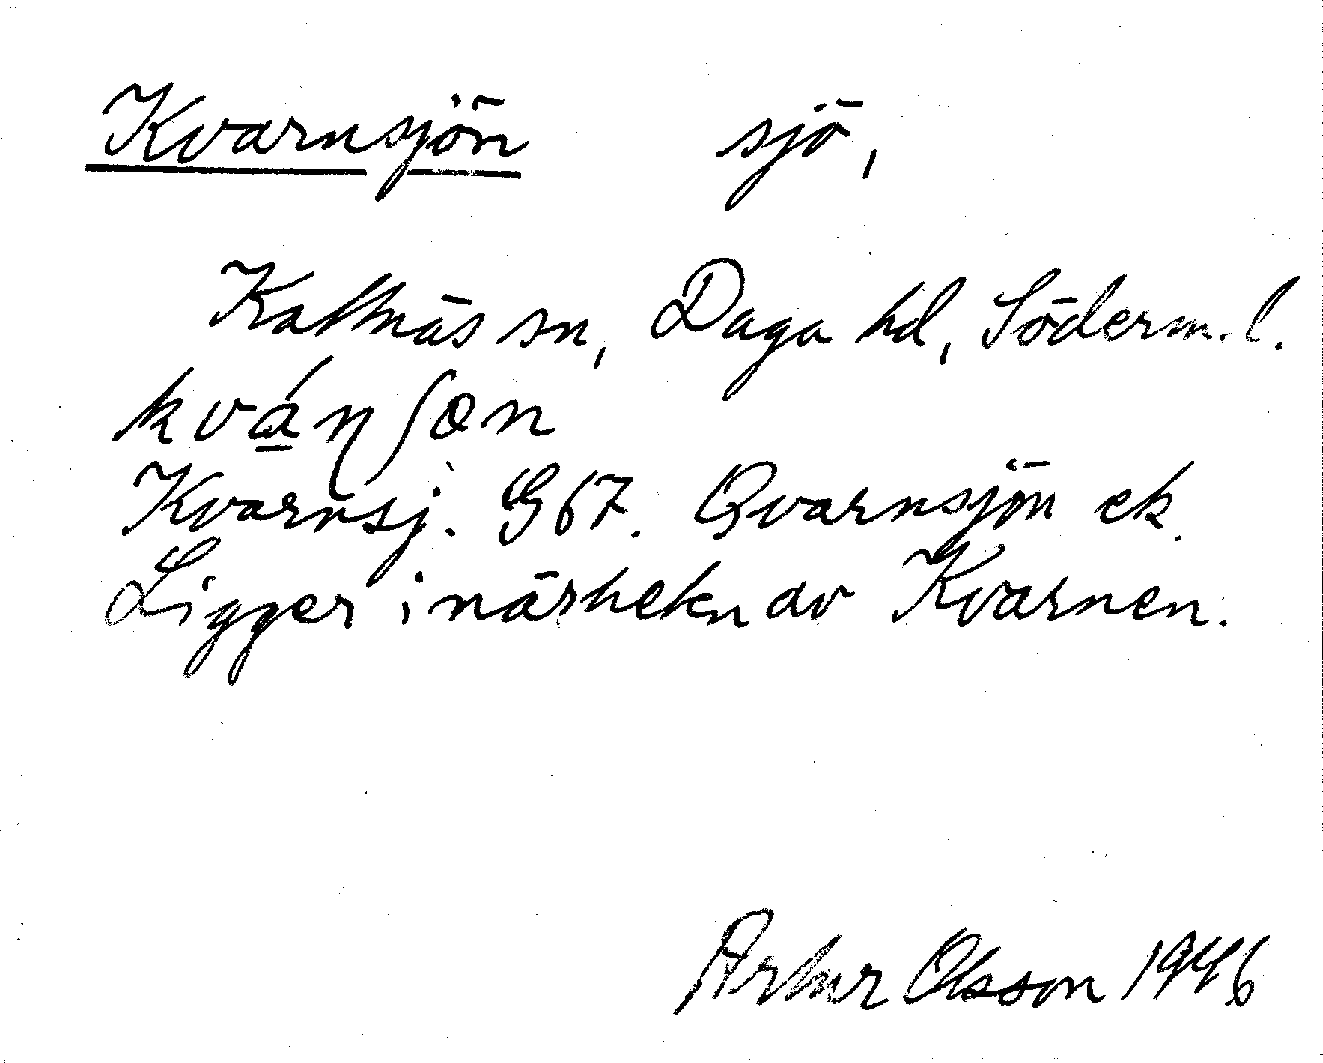 Kvarnsjön sjö,
Kattnäs sn, Daga hd, Söderm. l.
kvá̱ɳʃøn
Kvarnsj. G 67. Qvarnsjön ek.
Ligger i närheten av Kvarnen.
Artur Olsson 1946